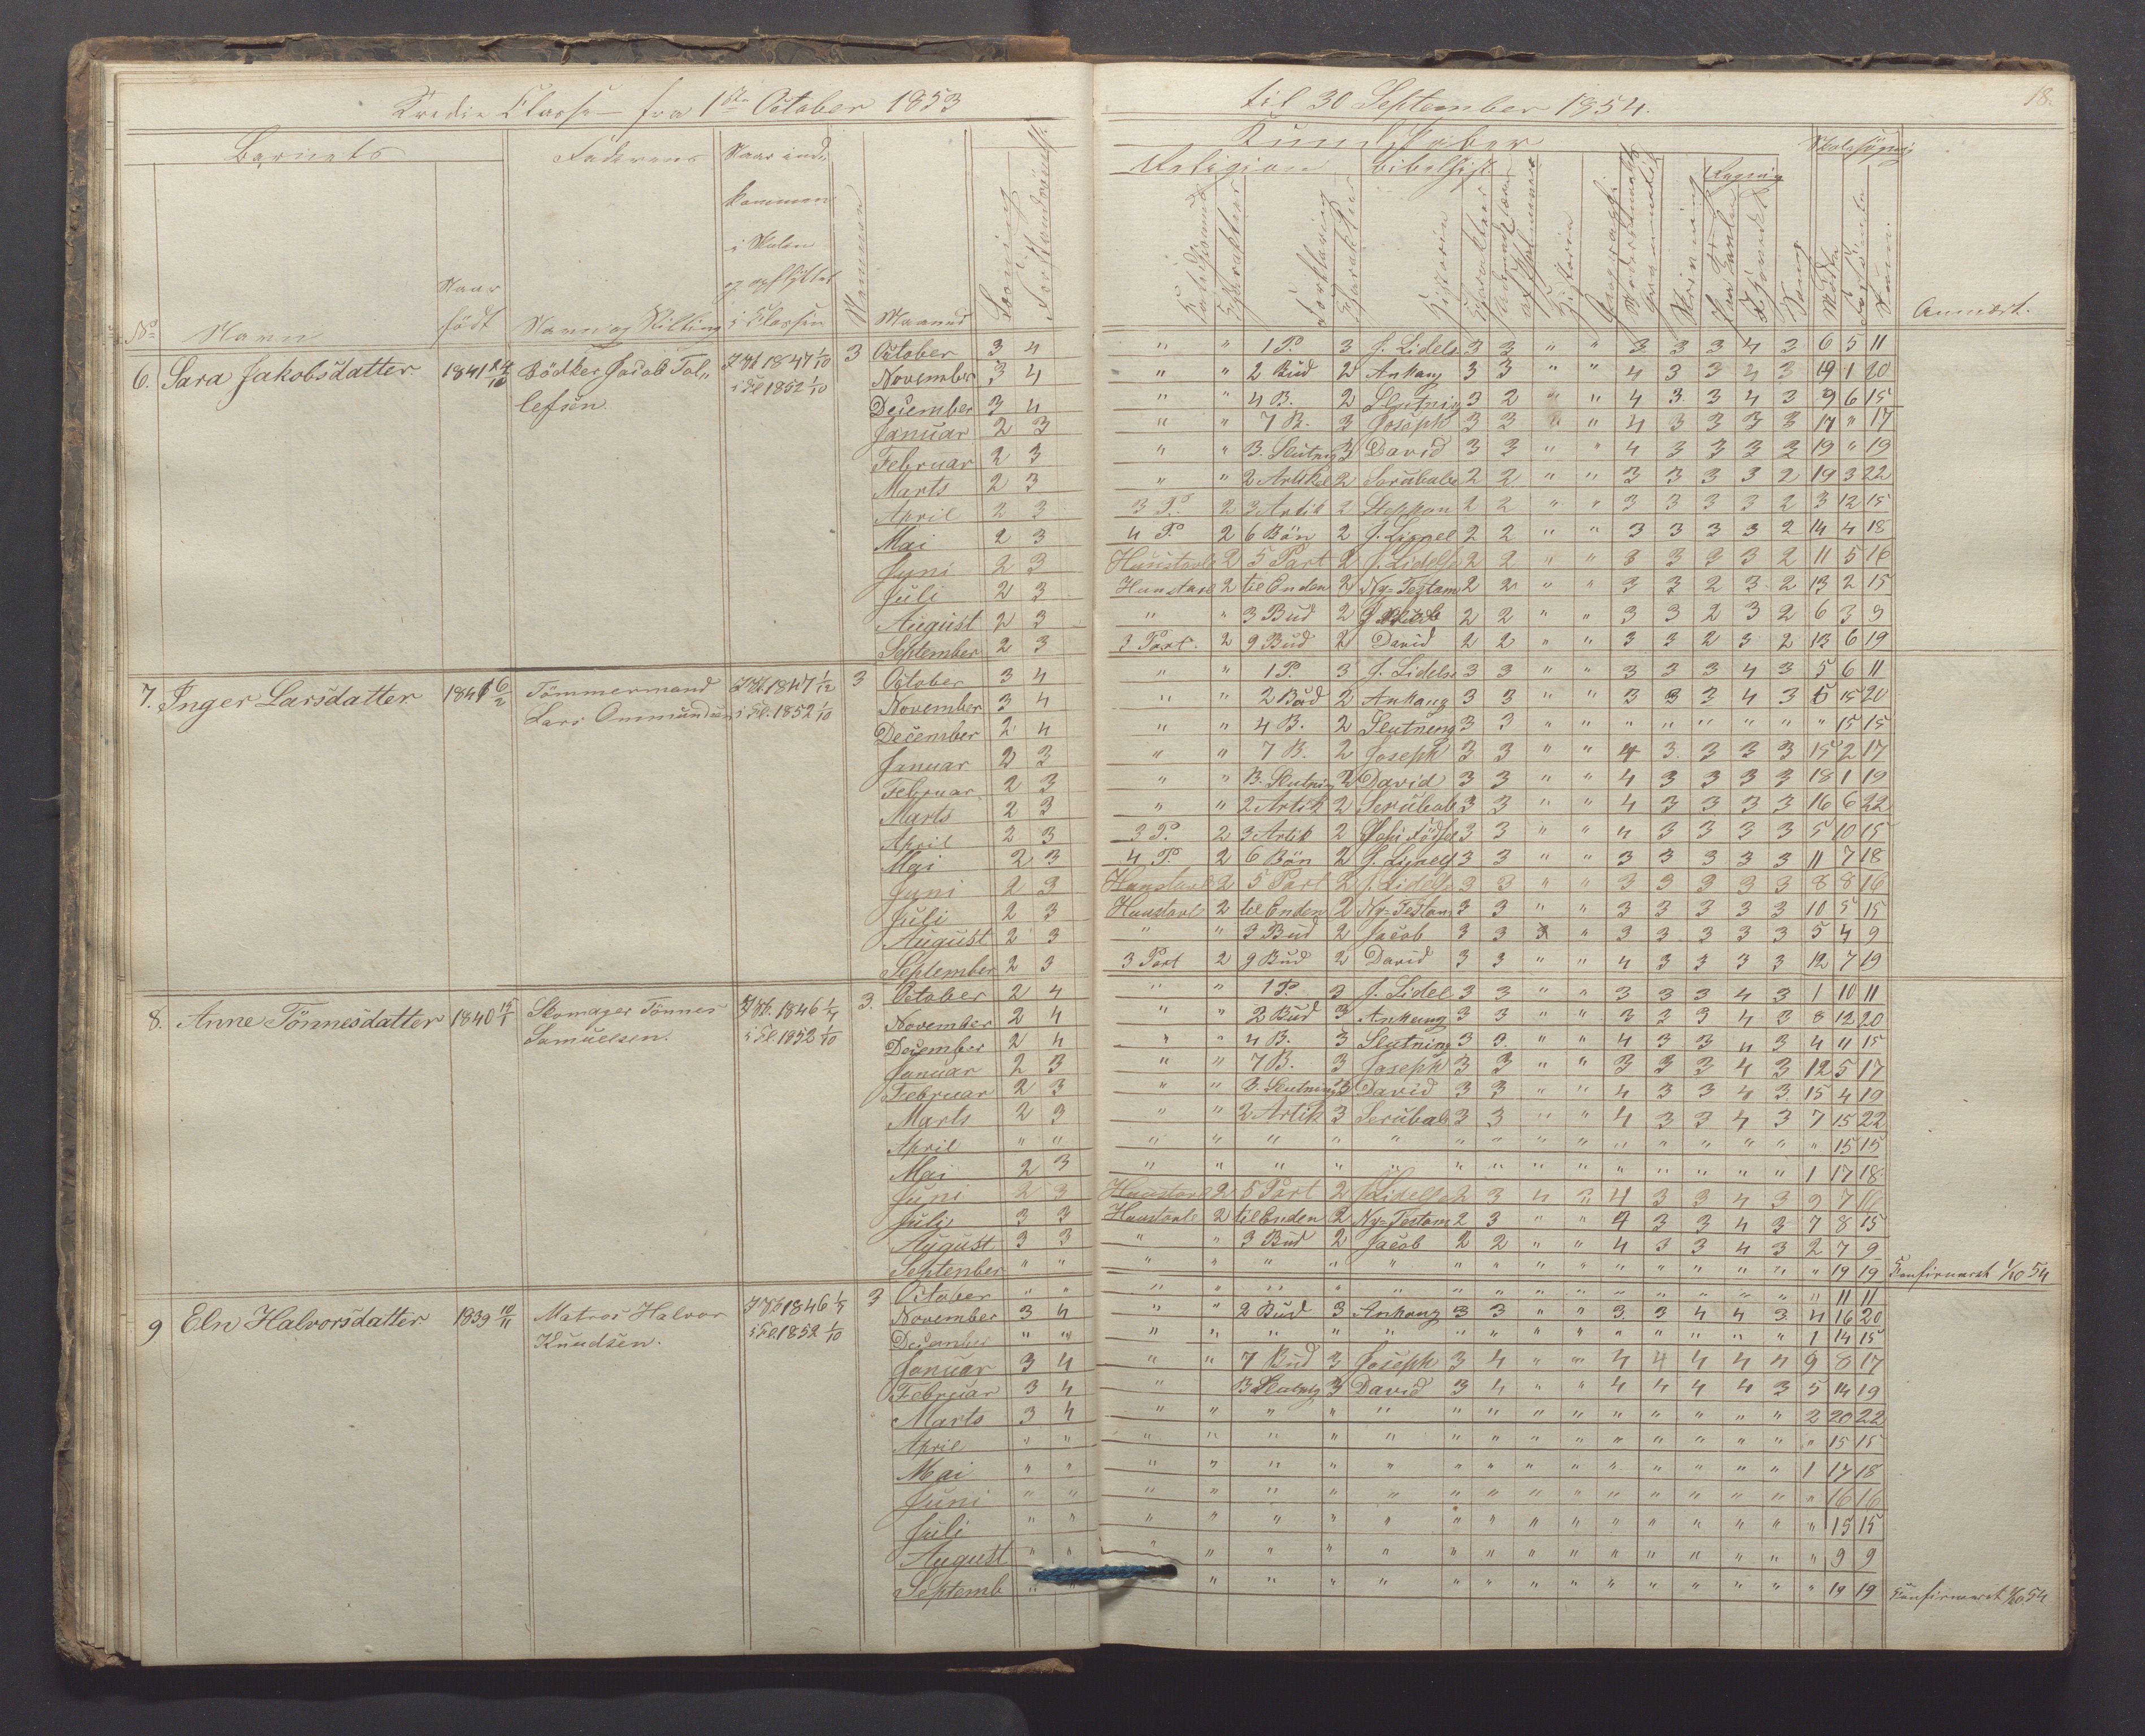 Tredie Classe fra 1ste October 1853
til 30 September 1854.
18.
Barnets
Faderens
Naar ind-
kommen
i Skolen
og opflyttet
i Classen
No
Navn
Naar
født
Navn og Stilling
Nummer
Maaned
Læsning
Forstandsøvelse
Kundskaber
Religion
Bibelhist.
Katekismus
Charakteer
Forklaring
Charakteer
Historie
Charakteer
Historie
Geografi
Modersmaalets
Skrivning
Regning
Sang
Skolesøgning
Mødte
Forsømte
Summ.
Anmærk.
6. Sara Jakobsdatter. 1841 Bödker Jacob Tol-
lefsen.
I Sk 1847 1/10
i Cl 1852 1/10
3 October 3 4 " " 1 P. 3 J. Lidels. 3 3 " " 3 3 3 4 3 6 5 11
November 3 4 " " 2 Bud 2 Ankang 3 3 " " 4 3 3 4 3 19 1 20
December 3 4 " " 4 B. 2 Slutning 3 2 " " 4 3 3 4 3 9 6 15
Januar 2 3 " " 7 B. 3 Joseph 3 3 " " 4 3 3 3 3 17 " 17
Februar 2 3 " " B. Slutnig 3 David 3 3 " " 4 3 3 3 2 19 " 19
Marts 2 3 " " 2 Artikel 2 Serubabel 2 2 " " 3 3 3 3 2 19 3 22
April 2 3 3 P. 2 3 Artik 2 Steppan 2 2 " " 3 3 3 3 2 3 12 15
Mai 2 3 4 P. 2 6 Bön 2 J. Lignel 2 2 " " 3 3 3 3 2 14 4 18
Juni 2 3 Huustavle 2 5 Part 2 J. Lidelse 2 2 " " 3 3 3 3 2 11 5 16
Juli 2 3 Huustavl 2 til Enden 2 Ny-Testam 2 2 " " 3 3 2 3 2 13 2 15
August 2 3 " " 3 Bud 2 Jacob 2 2 " " 3 3 2 3 2 6 3 9
September 2 3 3 Part. 2 9 Bud 2 David 2 2 " " 3 3 2 3 2 13 6 19
7. Inger Larsdatter 1841 6/2 Tömmermand
Lars Ommundsen
I Sk. 1847 1/12
i Cl. 1852 1/10
3 October 3 4 " " 1 P. 3 J. Lidels. 3 3 " " 3 3 3 4 3 5 6 11
November 3 4 " " 2 Bud 2 Ankang 3 3 " " 3 3 3 4 3 5 15 20
December 2 4 " " 4 B. 2 Slutning 3 3 " " " " " " " " 15 15
Januar 2 3 " " 7 B. 2 Joseph 3 3 " " 4 3 3 3 3 15 2 17
Februar 2 3 " " B. Slutning 2 David 3 3 " " 4 3 3 3 3 18 1 19
Marts 2 3 " " 2 Artik 2 Serubab 3 3 " " 4 3 3 3 3 16 6 22
April 2 3 3 P. 2 3 Artik 2 Jesu Födsel 3 3 " " 4 3 3 3 3 5 10 15
Mai 2 3 4 P. 2 6 Bön 2 J. Lignels 3 3 " " 3 3 3 3 3 11 7 18
Juni 2 3 Huustavl 2 5 Part 2 J. Lidelse 3 3 " " 3 3 3 3 3 8 8 16
Juli 2 3 Huustavl 2 til Enden 2 Ny-Testam 3 3 " " 3 3 3 3 3 10 5 15
August 2 3 " " 3 Bud 2 Jacob 3 3 3 " 3 3 3 3 3 5 4 9
September 2 3 3 Part 2 9 Bud 2 David 3 3 " " 4 3 3 3 3 12 7 19
8. Anne Tönnesdatter 1840 Skomager Tönnes
Samuelsen.
I Sk. 1846
i Cl. 1852 1/10
3. October 2 4 " " 1 P. 3 J. Lidel 3 3 " " 3 3 3 4 3 1 10 11
November 2 4 " " 2 Bud 3 Ankang 3 3 " " 3 3 3 4 3 8 12 20
December 2 4 " " 4 B. 3 Slutning 3 3. " " 4 3 3 4 3 4 11 15
Januar 2 3 " " 7 B. 3 Joseph 3 3 " " 3 3 3 4 3 12 5 17
Februar 2 3 " " B. Slutning 3 David 3 3 " " 4 3 3 4 3 15 4 19
Marts 2 3 " " 2 Artik 3 Serubab 3 3 " " 4 3 3 4 3 7 15 22
April " " " " " " " " " " " " " " " " " 15 15
Mai 2 3 " " " " " " " " " " " " " " 1 17 18
Juni 2 3 Huustavl 2 5 Part 2 J. Lidelse 2 3 " " 4 3 3 4 3 9 7 16
Juli 3 3 Huustavle 2 til Enden 2 Ny-Testam 2 3 " " 4 3 3 4 3 7 8 15
August 3 3 " " 3 Bud 2 Jacob 2 2 " " 4 3 3 4 3 2 7 9
September " " " " " " " " " " " " " " " " " 19 19 Konfirmeret 1/10 54
9 Eln Halvorsdatter. 1839 10/11 Matros Halvor
Knudsen.
I Sk 1846
i Cl. 1852 1/10
3 October " " " " " " " " " " " " " " " " " 11 11
November 3 4 " " 2 Bud 3 Ankang 3 3 " " 3 3 4 4 3 4 16 20
December " " " " " " " " " " " " " " " " 1 14 15
Januar 3 4 " " 7 Bud 3 Joseph 3 4 " " 4 4 4 4 4 9 8 17
Februar 3 4 " B Slutnig 3 David 3 4 " " 4 4 4 4 3 5 14 19
Marts 3 4 " " " " " " " " " " " " " " 2 20 22
April " " " " " " " " " " " " " " " " " 15 15
Mai " " " " " " " " " " " " " " " " 1 17 18
Juni " " " " " " " " " " " " " " " " " 16 16
Juli " " " " " " " " " " " " " " " " " 15 15
August " " " " " " " " " " " " " " " " " 9 9
Septemb " " " " " " " " " " " " " " " " 19 19 Konfirmeret 1/10.54